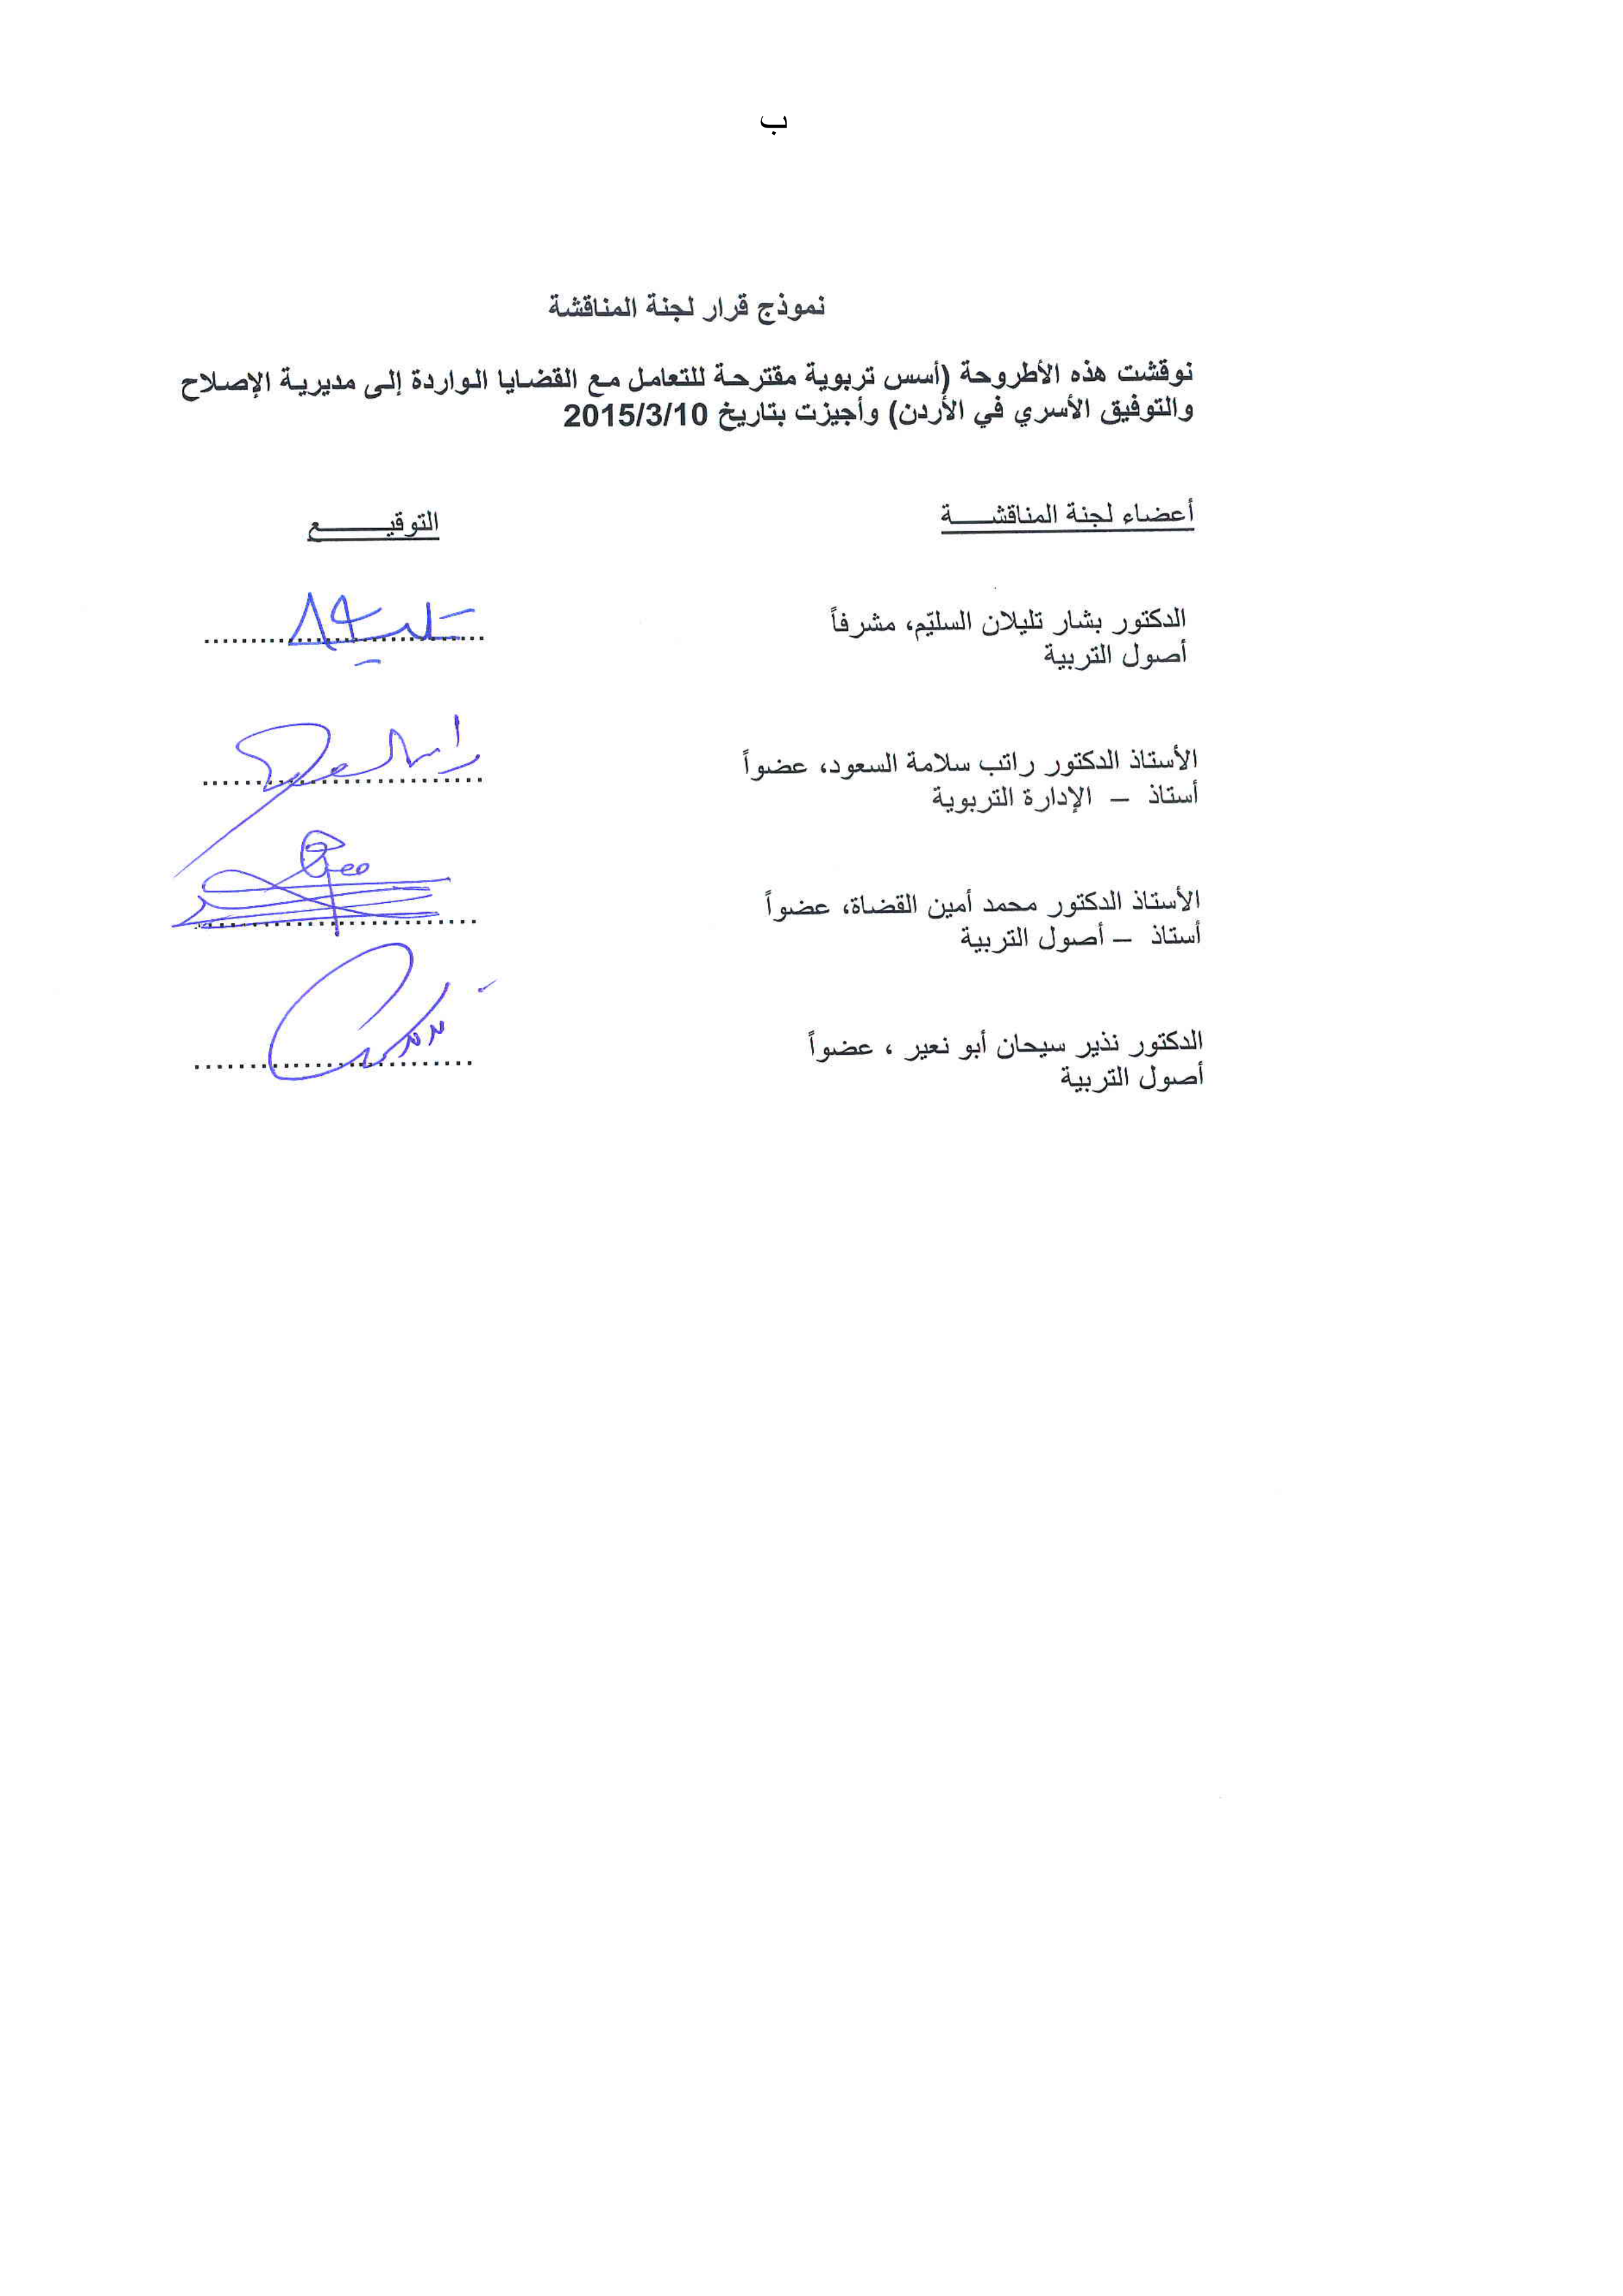 ب
نموذج قرار لجنة المناقشة
نوقشت هذه الأطروحة (أسس تربوية مقترحة للتعامل مع القضايا الواردة إلى مديرية الإصلاح
والتوفيق الأسري في الأردن) وأجيزت بتاريخ 2015/3/10
أعضاء لجنة المناقشـــــة
التوقيـــــــــــع
الدكتور بشار تليلان السليّم، مشرفاً
أصول التربية
..............................
الأستاذ الدكتور راتب سلامة السعود، عضواً
أستاذ – الإدارة التربوية
..............................
الأستاذ الدكتور محمد أمين القضاة، عضواً
أستاذ – أصول التربية
..............................
الدكتور نذير سيحان أبو نعير ، عضواً
أصول التربية
..............................